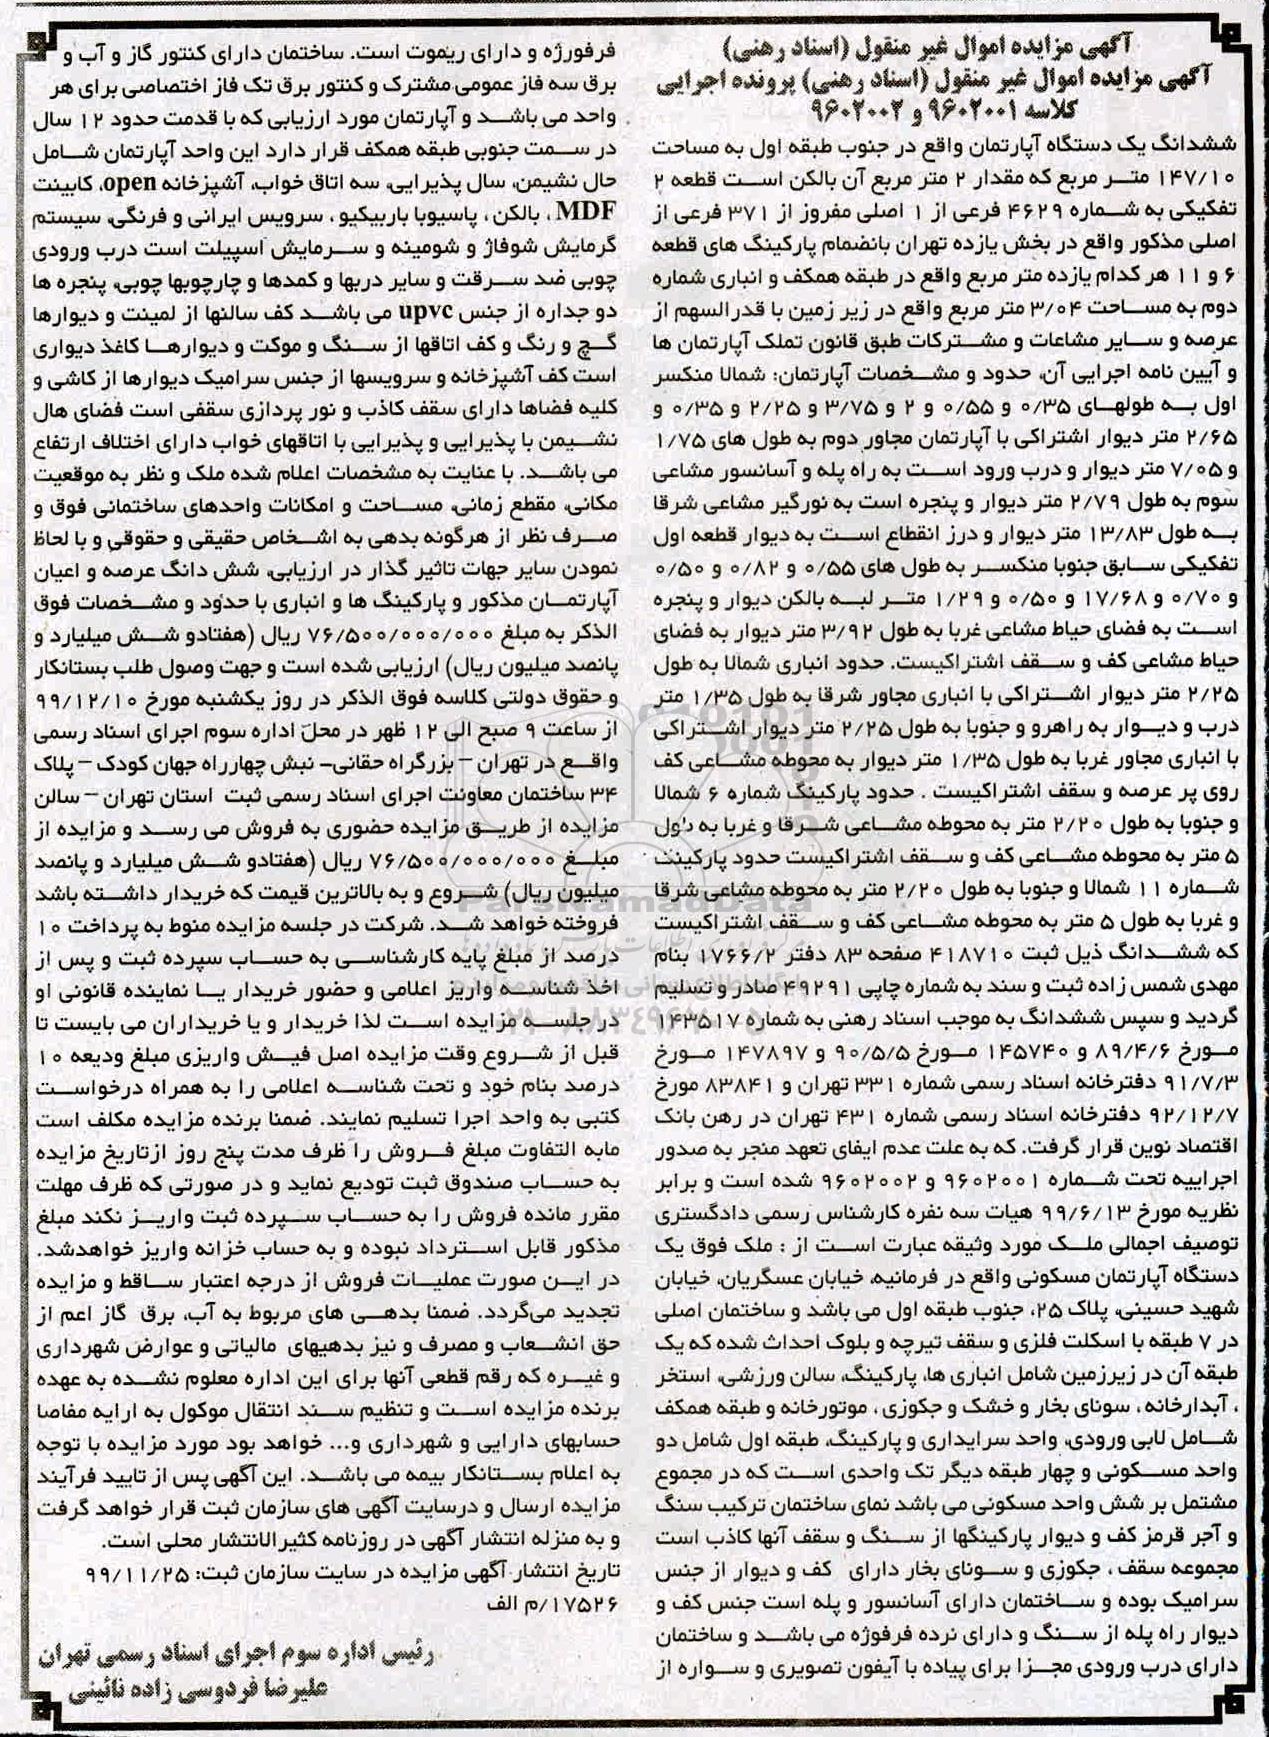 آگهی مزایده اموال غیر منقول (اسناد رهنی)
آگهی مزایده اموال غیر منقول (اسناد رهنی) پرونده اجرایی
کلاسه ۹۶۰۲۰۰۱ و ۹۶۰۲۰۰۲
ششدانگ یک دستگاه آپارتمان واقع در جنوب طبقه اول به مساحت
۱۴۷/۱۰ متر مربع که مقدار ۲ متر مربع آن بالکن است قطعه ۲
تفکیکی به شماره ۴۶۲۹ فرعی از ۱ اصلی مفروز از ۳۷۱ فرعی از
اصلی مذکور واقع در بخش یازده تهران بانضمام پارکینگ های قطعه
۶ و ۱۱ هر کدام یازده متر مربع واقع در طبقه همکف و انباری شماره
دوم به مساحت ۳/۰۴ متر مربع واقع در زیر زمین با قدرالسهم از
عرصه و سایر مشاعات و مشترکات طبق قانون تملک آپارتمان ها
و آیین نامه اجرایی آن، حدود و مشخصات آپارتمان: شمالا منکسر
اول به طولهای ۰/۳۵ و ۰/۵۵ و ۲ و ۳/۷۵ و ۲/۲۵ و ۰/۳۵ و
۲/۶۵ متر دیوار اشتراکی با آپارتمان مجاور دوم به طول های ۱/۷۵
و ۷/۰۵ متر دیوار و درب ورود است به راه پله و آسانسور مشاعی
سوم به طول ۲/۷۹ متر دیوار و پنجره است به نورگیر مشاعی شرقا
به طول ۱۳/۸۳ متر دیوار و درز انقطاع است به دیوار قطعه اول
تفکیکی سابق جنوبا منکسر به طول های ۰/۵۵ و ۰/۸۲ و ۰/۵۰
و ۰/۷۰ و ۱۷/۶۸ و ۰/۵۰ و ۱/۲۹ متر لبه بالکن دیوار و پنجره
است به فضای حیاط مشاعی غربا به طول ۳/۹۲ متر دیوار به فضای
حیاط مشاعی کف و سقف اشتراکیست. حدود انباری شمالا به طول
۲/۲۵ متر دیوار اشتراکی با انباری مجاور شرقا به طول ۱/۳۵ متر
درب و دیوار به راهرو و جنوبا به طول ۲/۲۵ متر دیوار اشتراکی
با انباری مجاور غربا به طول ۱/۳۵ متر دیوار به محوطه مشاعی کف
روی پر عرصه و سقف اشتراکیست . حدود پارکینگ شماره ۶ شمالا
و جنوبا به طول ۲/۲۰ متر به محوطه مشاعی شرقا و غربا به طول
۵ متر به محوطه مشاعی کف و سقف اشتراکیست حدود پارکینگ
شماره ۱۱ شمالا و جنوبا به طول ۲/۲۰ متر به محوطه مشاعی شرقا
و غربا به طول ۵ متر به محوطه مشاعی کف و سقف اشتراکیست
که ششدانگ ذیل ثبت ۴۱۸۷۱۰ صفحه ۸۳ دفتر ۱۷۶۶/۲ بنام
مهدی شمس زاده ثبت و سند به شماره چاپی ۴۹۲۹۱ صادر و تسلیم
گردید و سپس ششدانگ به موجب اسناد رهنی به شماره ۱۴۳۵۱۷
مورخ ۸۹/۴/۶ و ۱۴۵۷۴۰ مورخ ۹۰/۵/۵ و ۱۴۷۸۹۷ مورخ
۹۱/۷/۳ دفترخانه اسناد رسمی شماره ۳۳۱ تهران و ۸۳۸۴۱ مورخ
۹۲/۱۲/۷ دفترخانه اسناد رسمی شماره ۴۳۱ تهران در رهن بانک
اقتصاد نوین قرار گرفت. که به علت عدم ایفای تعهد منجر به صدور
اجراییه تحت شماره ۹۶۰۲۰۰۱ و ۹۶۰۲۰۰۲ شده است و برابر
نظریه مورخ ۹۹/۶/۱۳ هیات سه نفره کارشناس رسمی دادگستری
توصیف اجمالی ملک مورد وثیقه عبارت است از : ملک فوق یک
دستگاه آپارتمان مسکونی واقع در فرمانیه، خیابان عسگریان، خیابان
شهید حسینی، پلاک ۲۵، جنوب طبقه اول می باشد و ساختمان اصلی
در ۷ طبقه با اسکلت فلزی و سقف تیرچه و بلوک احداث شده که یک
طبقه آن در زیرزمین شامل انباری ها، پارکینگ، سالن ورزشی، استخر
، آبدارخانه ، سونای بخار و خشک و جکوزی ، موتورخانه و طبقه همکف
شامل لابی ورودی، واحد سرایداری و پارکینگ، طبقه اول شامل دو
واحد مسکونی و چهار طبقه دیگر تک واحدی است که در مجموع
مشتمل بر شش واحد مسکونی می باشد نمای ساختمان ترکیب سنگ
و آجر قرمز کف و دیوار پارکینگها از سنگ و سقف آنها کاذب است
مجموعه سقف ، جکوزی و سونای بخار دارای کف و دیوار از جنس
سرامیک بوده و ساختمان دارای آسانسور و پله است جنس کف و
دیوار راه پله از سنگ و دارای نرده فرفوژه می باشد و ساختمان
دارای درب ورودی مجزا برای پیاده با آیفون تصویری و سواره از
فرفورژه و دارای ریموت است. ساختمان دارای کنتور گاز و آب و
برق سه فاز عمومی مشترک و کنتور برق تک فاز اختصاصی برای هر
واحد می باشد و آپارتمان مورد ارزیابی که با قدمت حدود ۱۲ سال
در سمت جنوبی طبقه همکف قرار دارد این واحد آپارتمان شامل
حال نشیمن، سال پذیرایی، سه اتاق خواب، آشپزخانه open، کابینت
MDF ، بالکن ، پاسیوبا باربیکیو ، سرویس ایرانی و فرنگی، سیستم
گرمایش شوفاژ و شومینه و سرمایش اسپیلت است درب ورودی
چوبی ضد سرقت و سایر دربها و کمدها و چارچوبها چوبی، پنجره ها
دو جداره از جنس upvc می باشد کف سالنها از لمینت و دیوارها
گچ و رنگ و کف اتاقها از سنگ و موکت و دیوارها کاغذ دیواری
است کف آشپزخانه و سرویسها از جنس سرامیک دیوارها از کاشی و
کلیه فضاها دارای سقف کاذب و نور پردازی سقفی است فضای هال
نشیمن با پذیرایی و پذیرایی با اتاقهای خواب دارای اختلاف ارتفاع
می باشد. با عنایت به مشخصات اعلام شده ملک و نظر به موقعیت
مکانی، مقطع زمانی، مساحت و امکانات واحدهای ساختمانی فوق و
صرف نظر از هرگونه بدهی به اشخاص حقیقی و حقوقی و با لحاظ
نمودن سایر جهات تاثیر گذار در ارزیابی، شش دانگ عرصه و اعیان
آپارتمان مذکور و پارکینگ ها و انباری با حدود و مشخصات فوق
الذکر به مبلغ ۷۶/۵۰۰/۰۰۰/۰۰۰ ریال (هفتادو شش میلیارد و
پانصد میلیون ریال) ارزیابی شده است و جهت وصول طلب بستانکار
و حقوق دولتی کلاسه فوق الذکر در روز یکشنبه مورخ ۹۹/۱۲/۱۰
از ساعت ۹ صبح الی ۱۲ ظهر در محل اداره سوم اجرای اسناد رسمی
واقع در تهران – بزرگراه حقانی– نبش چهارراه جهان کودک – پلاک
۳۴ ساختمان معاونت اجرای اسناد رسمی ثبت استان تهران – سالن
مزایده از طریق مزایده حضوری به فروش می رسد و مزایده از
مبلغ ۷۶/۵۰۰/۰۰۰/۰۰۰ ریال (هفتادو شش میلیارد و پانصد
میلیون ریال) شروع و به بالاترین قیمت که خریدار داشته باشد
فروخته خواهد شد. شرکت در جلسه مزایده منوط به پرداخت ۱۰
درصد از مبلغ پایه کارشناسی به حساب سپرده ثبت و پس از
اخذ شناسه واریز اعلامی و حضور خریدار یا نماینده قانونی او
در جلسه مزایده است لذا خریدار و یا خریداران می بایست تا
قبل از شروع وقت مزایده اصل فیش واریزی مبلغ ودیعه ۱۰
درصد بنام خود و تحت شناسه اعلامی را به همراه درخواست
کتبی به واحد اجرا تسلیم نمایند. ضمنا برنده مزایده مکلف است
مابه التفاوت مبلغ فروش را ظرف مدت پنج روز ازتاریخ مزایده
به حساب صندوق ثبت تودیع نماید و در صورتی که ظرف مهلت
مقرر مانده فروش را به حساب سپرده ثبت واریز نکند مبلغ
مذکور قابل استرداد نبوده و به حساب خزانه واریز خواهدشد.
در این صورت عملیات فروش از درجه اعتبار ساقط و مزایده
تجدید می‌گردد. ضمنا بدهی های مربوط به آب، برق گاز اعم از
حق انشعاب و مصرف و نیز بدهیهای مالیاتی و عوارض شهرداری
و غیره که رقم قطعی آنها برای این اداره معلوم نشده به عهده
برنده مزایده است و تنظیم سند انتقال موکول به ارایه مفاصا
حسابهای دارایی و شهرداری و... خواهد بود مورد مزایده با توجه
به اعلام بستانکار بیمه می باشد. این آگهی پس از تایید فرآیند
مزایده ارسال و درسایت آگهی های سازمان ثبت قرار خواهد گرفت
و به منزله انتشار آگهی در روزنامه کثیرالانتشار محلی است.
تاریخ انتشار آگهی مزایده در سایت سازمان ثبت: ۹۹/۱۱/۲۵
۱۷۵۲۶/م الف
رئیس اداره سوم اجرای اسناد رسمی تهران
علیرضا فردوسی زاده نائینی
ParsNamadData